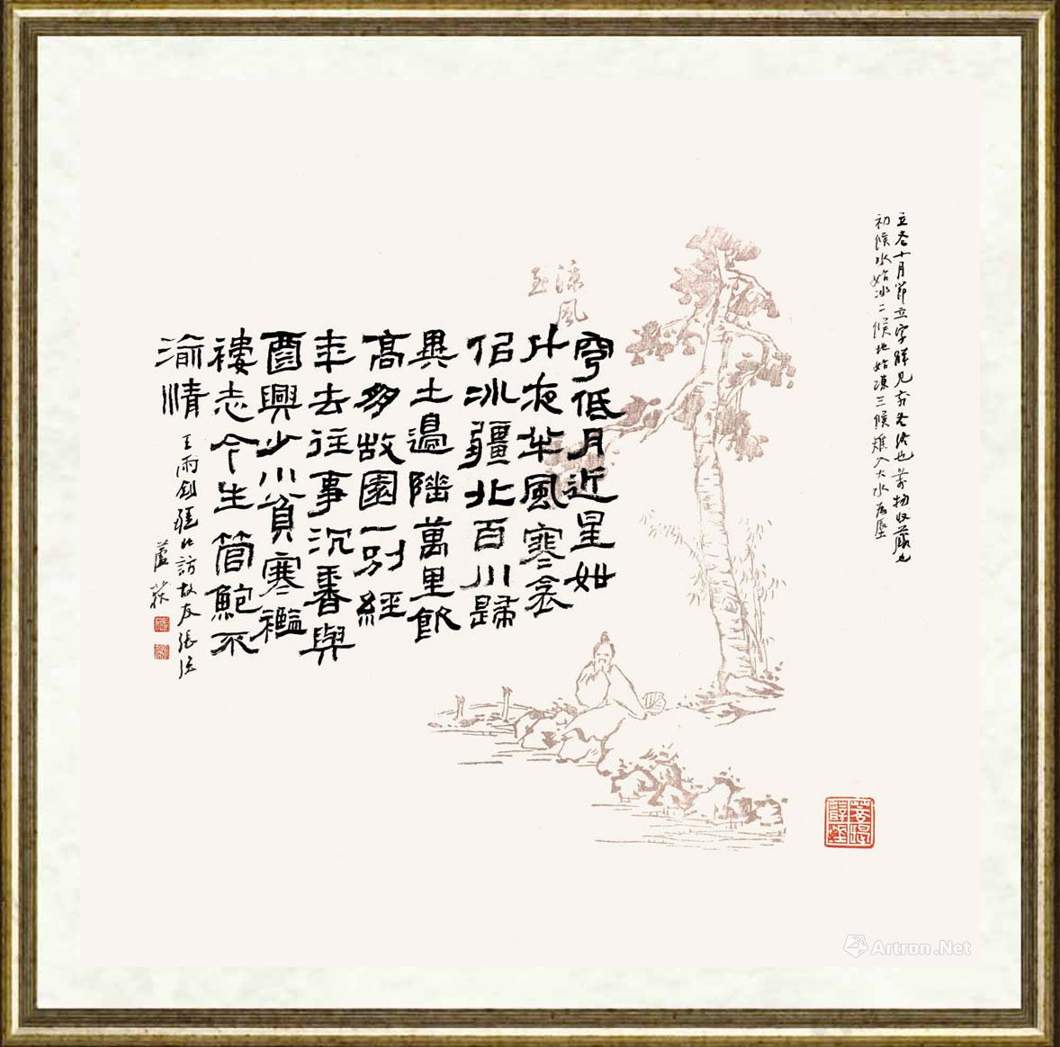 立冬十月節立字解見前冬終也萬物收藏也
初候水始冰二候地始凍三候雉入大水為蜃
涼風
至
穹低月近星如
斗夜半風寒衾
佀冰疆北百川歸
異土邊陲萬里飲
高多故園一别經
年去往事沉香與
酉興少小貧寒襤
褸志今生管鮑不
渝情
疆北訪故友張
蘆荻
Artron.Net